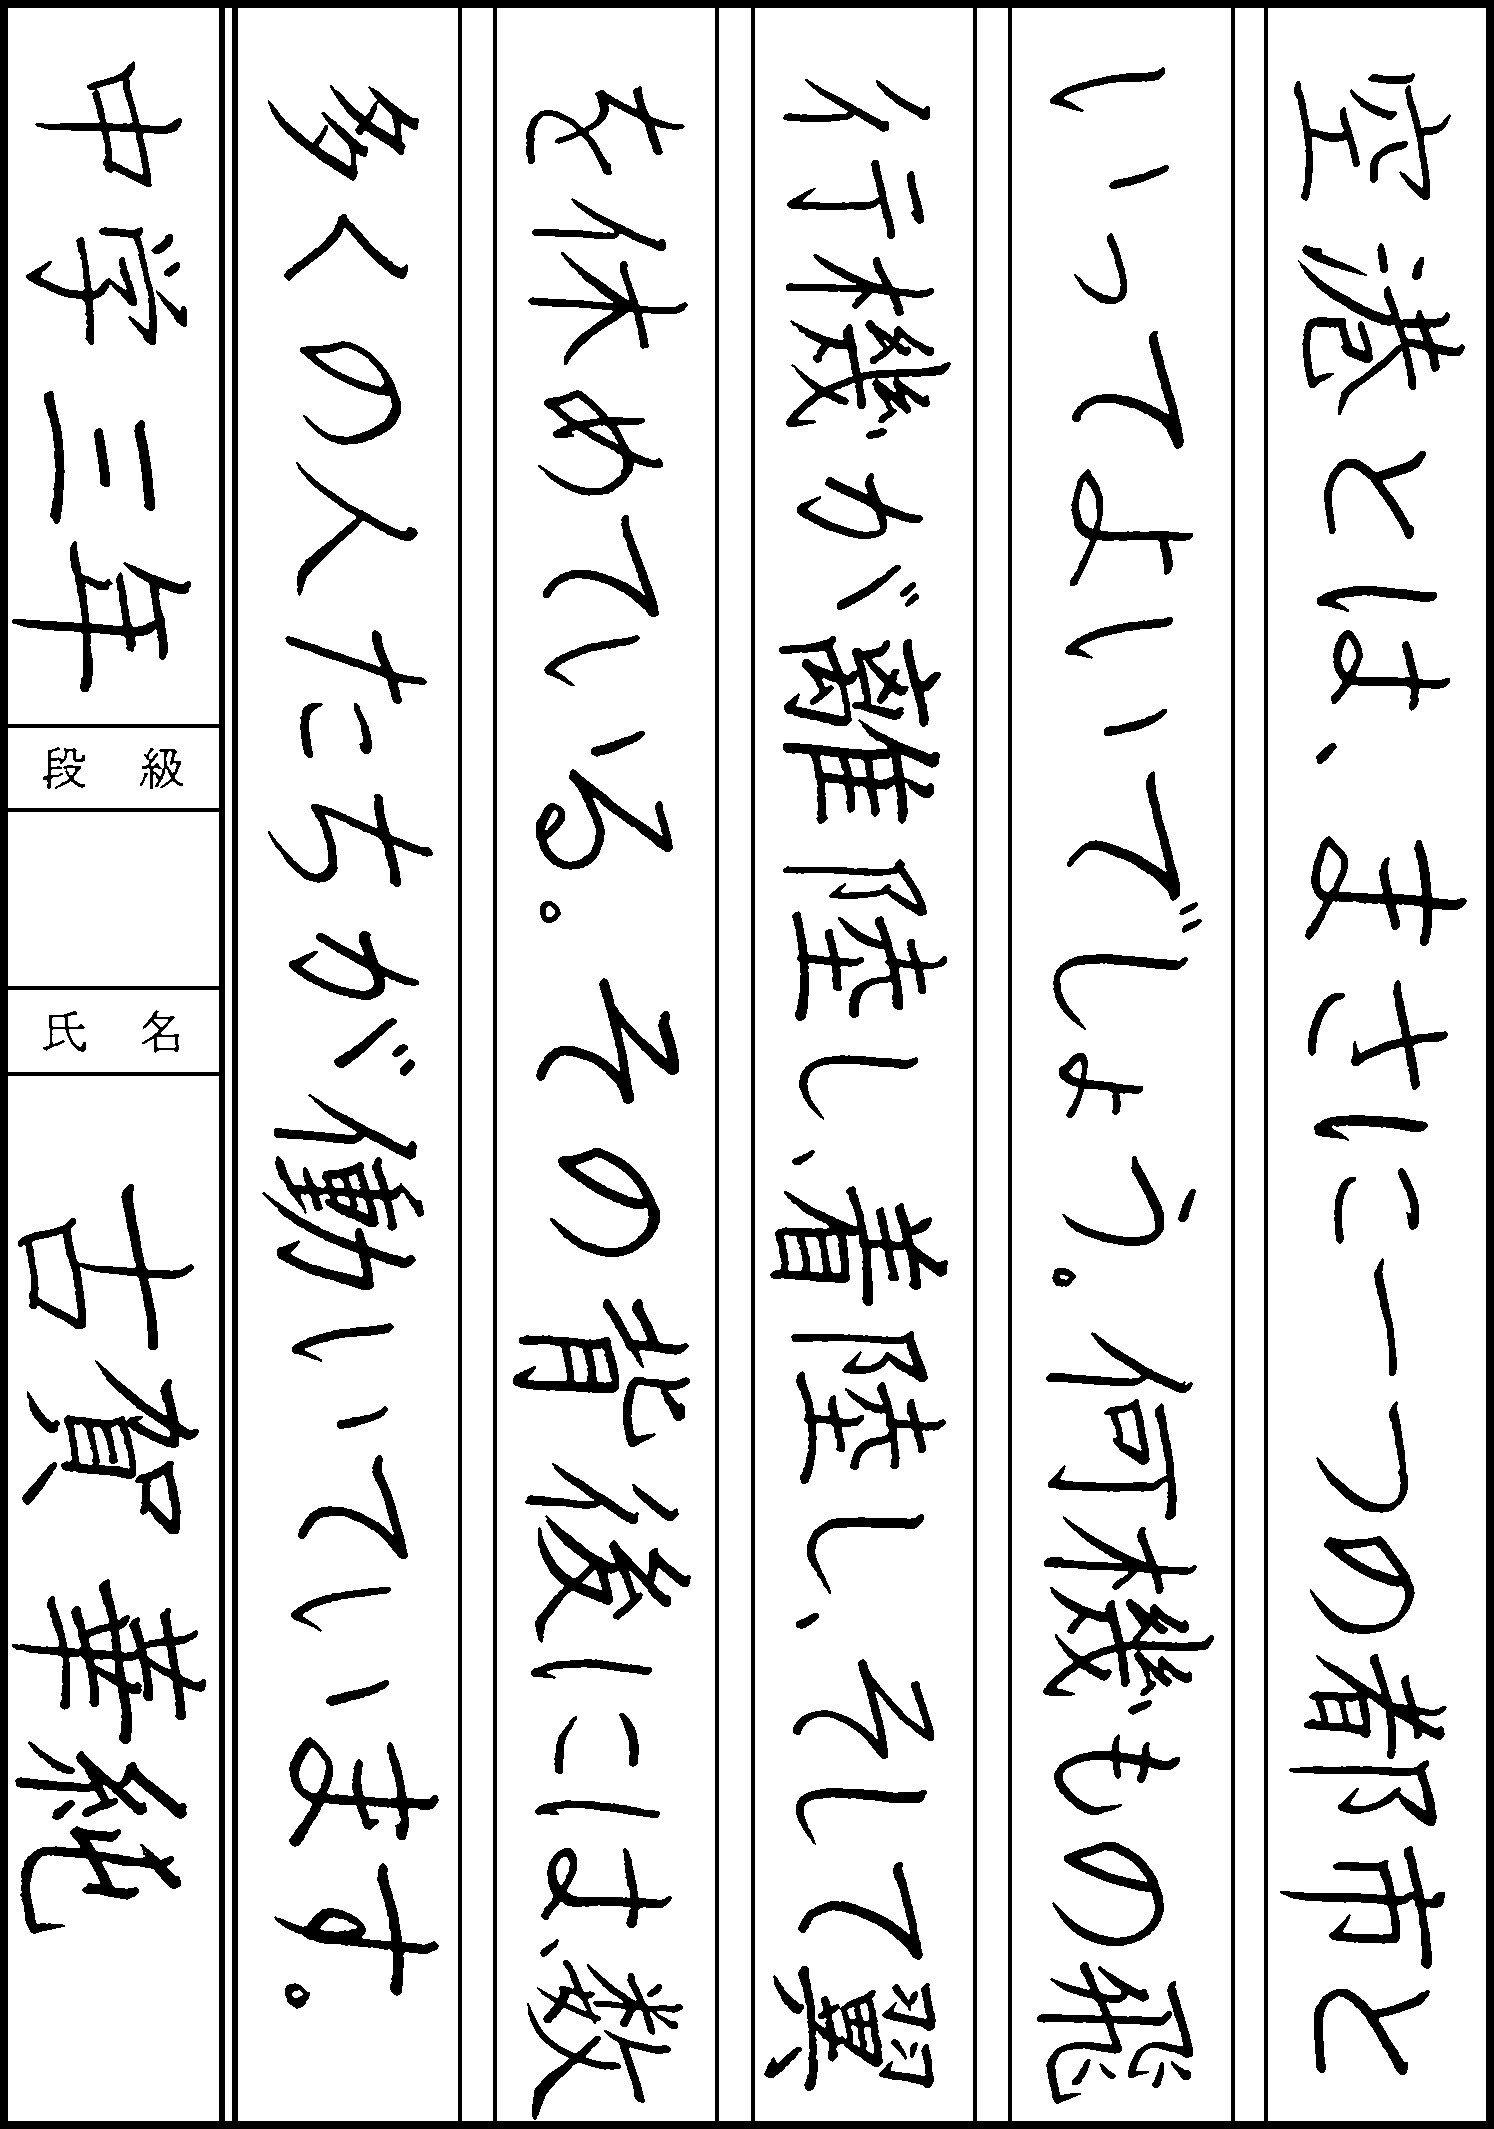 空港とは、まさに一つの都市と
いってよいでしょう。何機もの飛
行機が離陸し、着陸し、そして翼
を休めている。その背後には、数
多くの人たちが働いています。
中学三年 段級 氏名 古賀華純